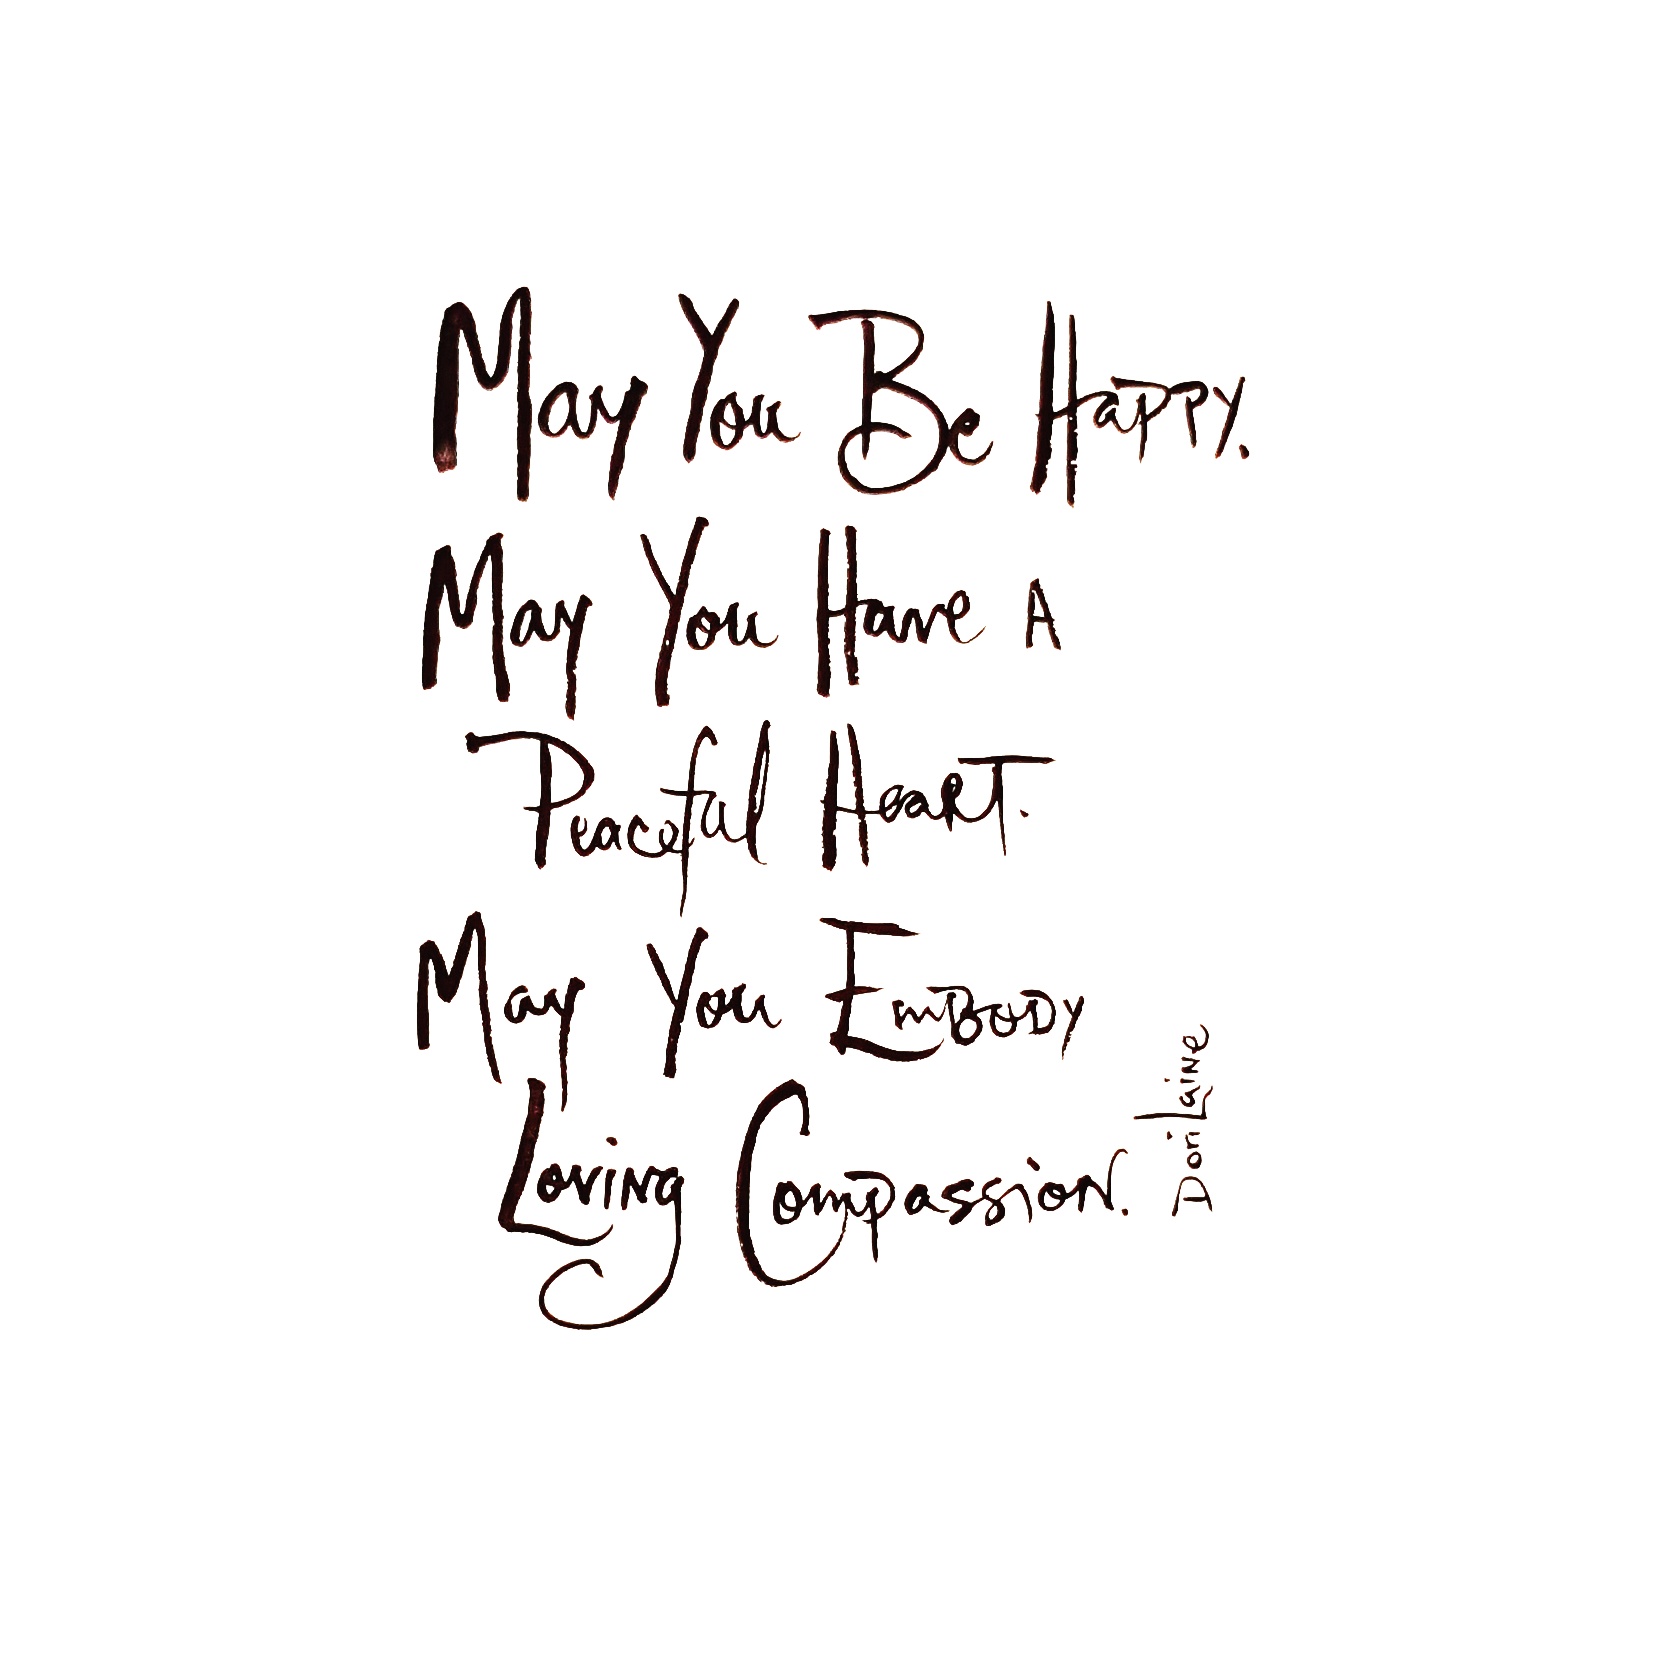 May You Be Happy.
May You Have A
Peaceful Heart.
May You Embody
Loving Compassion.
Dori Laine